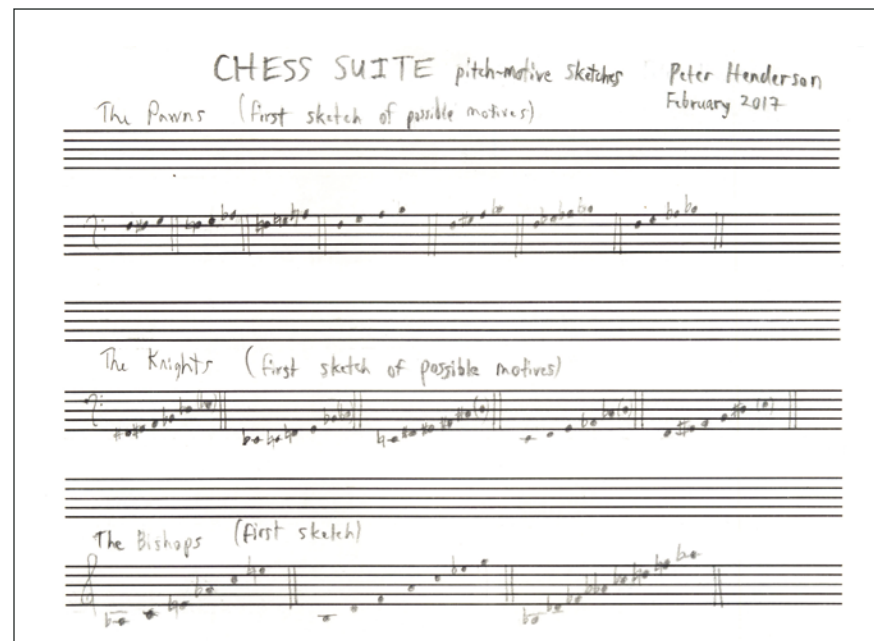 CHESS SUITE pitch-motive sketches Peter Henderson
February 2017
The Pawns (first sketch of possible motives)
The Knights (first sketch of possible motives)
The Bishops (first sketch)